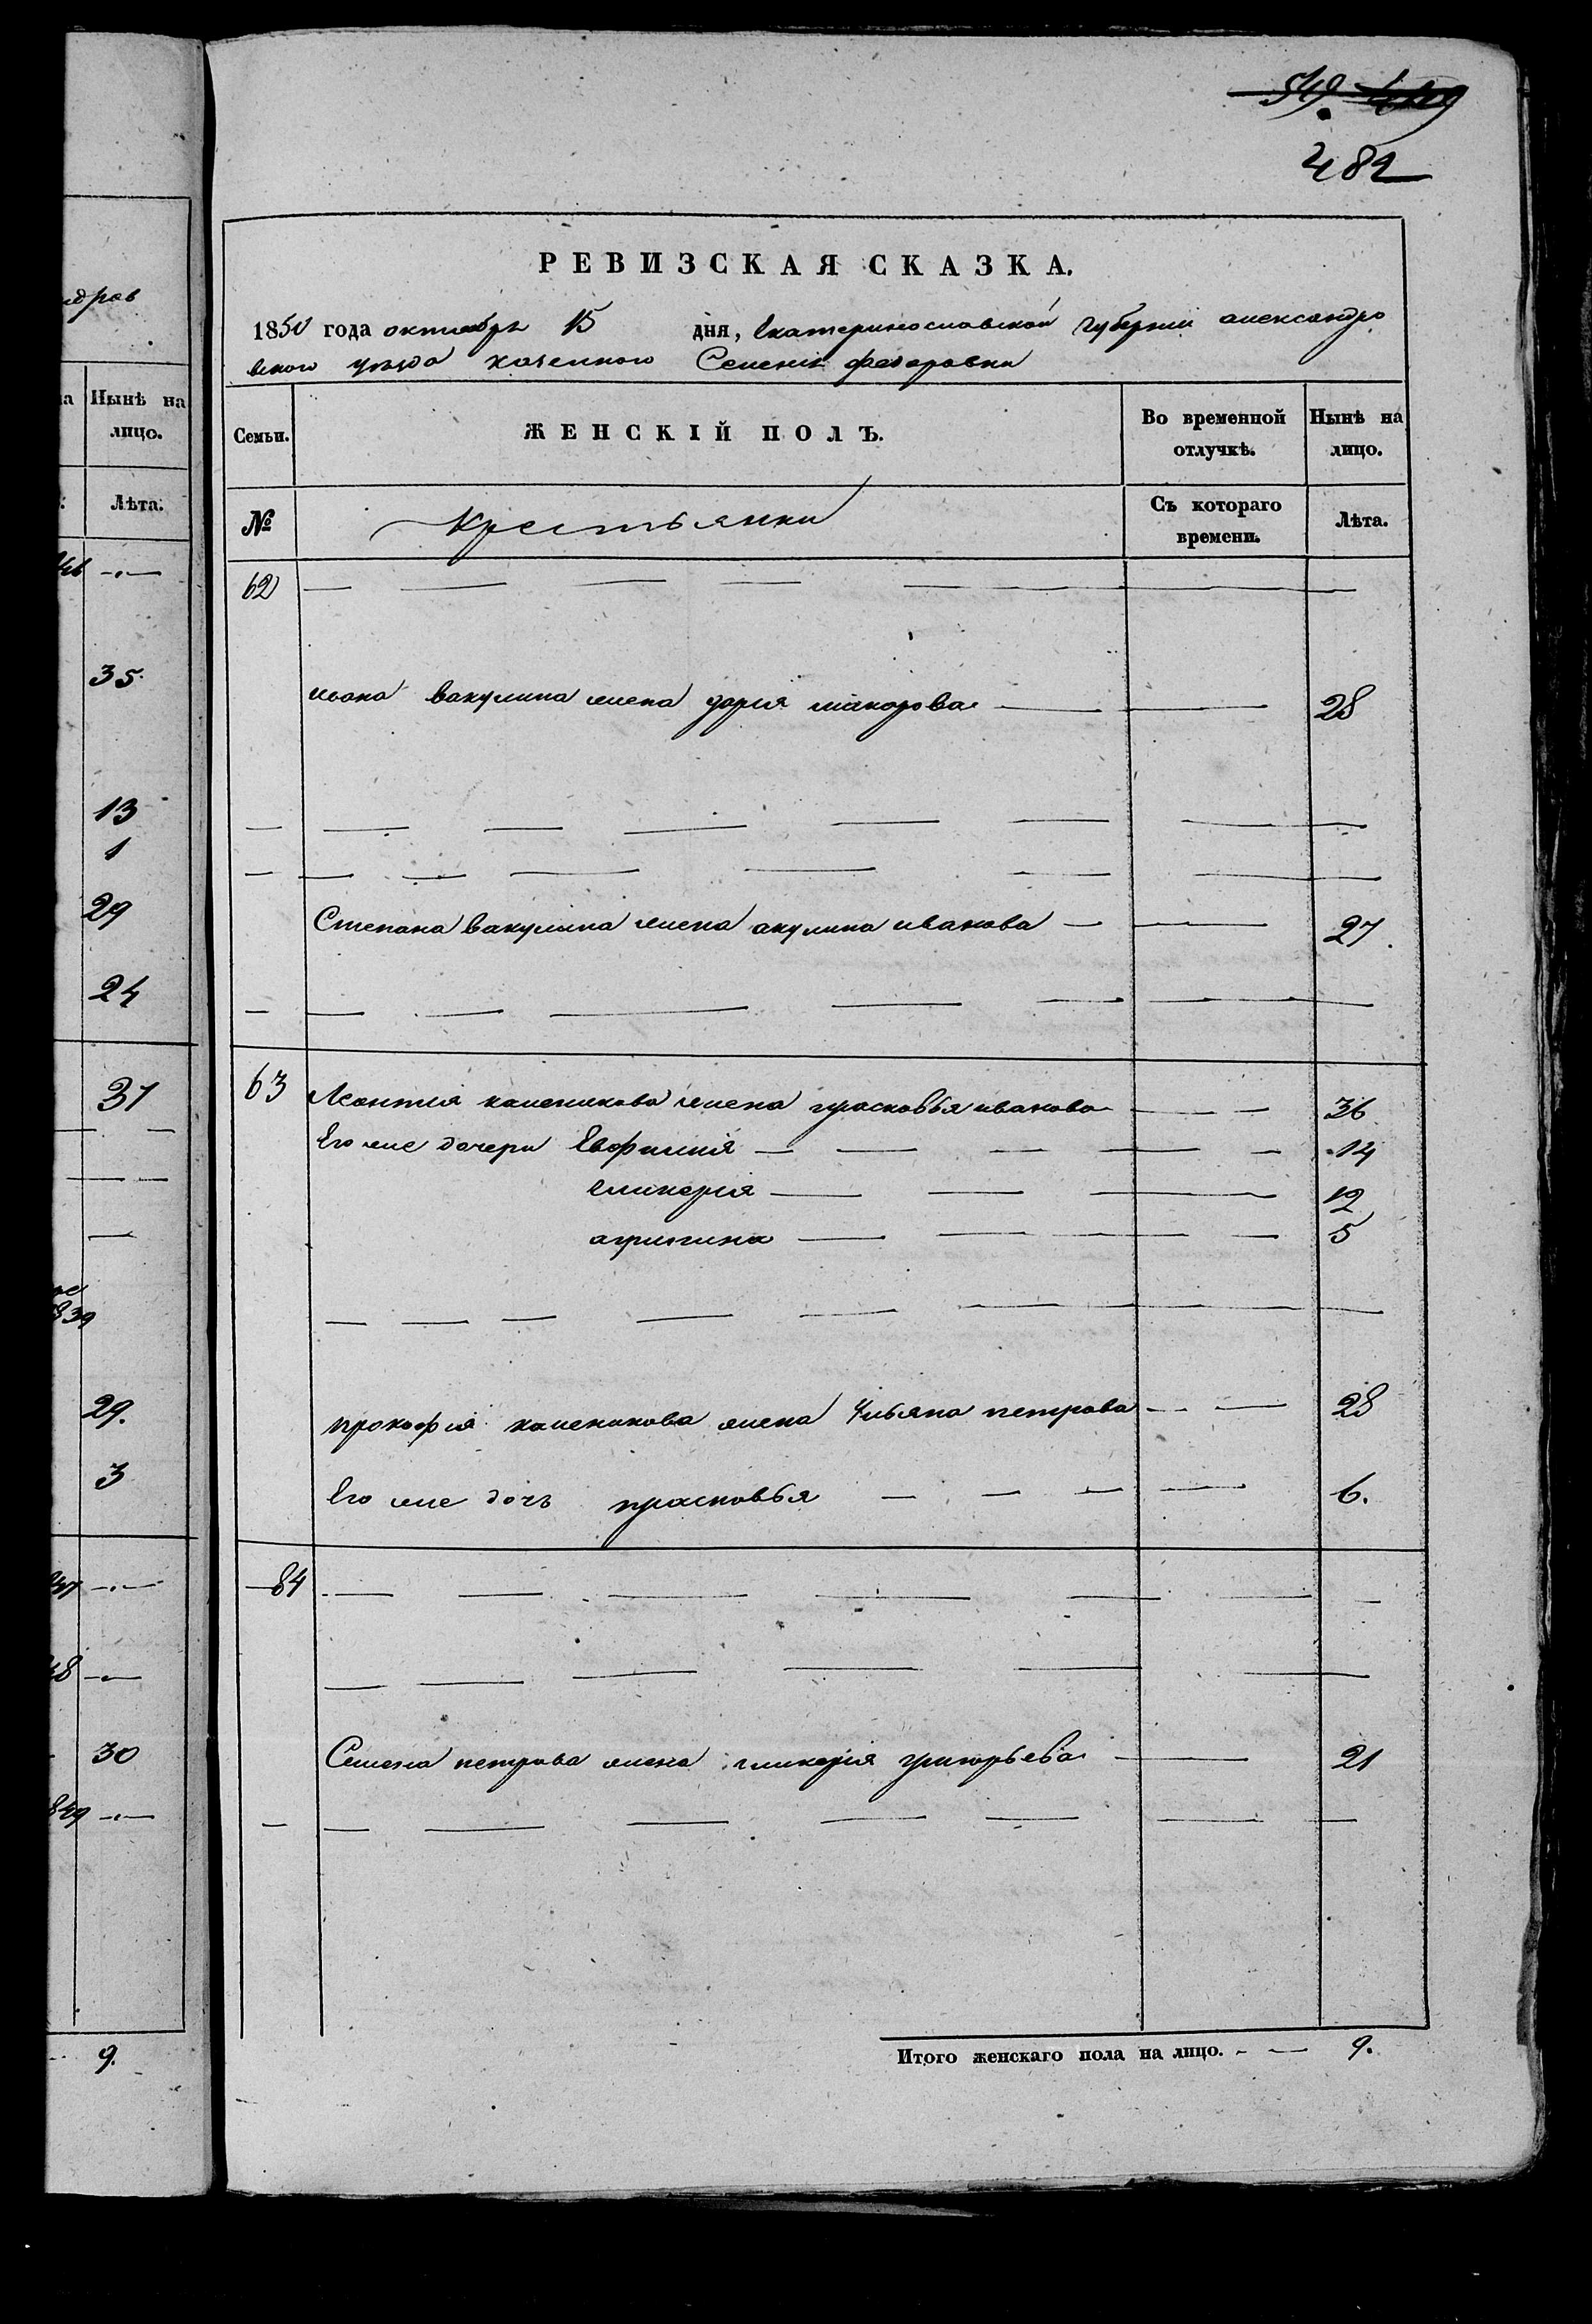 549.
482
РЕВИЗСКАЯ СКАЗКА.
1850 года октября 15 дня, Екатеринославской губернии александро
вского уезда казенного Селенія федоровки
Семьи. ЖЕНСКІЙ ПОЛЪ. Во временной отлучкѣ. Нынѣ на лицо.
№ Крестьянки Съ котораго времени. Лѣта.
62
вакулина жена дарія 28
Степана вакулина жена акулина иванова 27.
63 Леонтія жена прасковья иванова 36
Его же дочери Евфимія 14
гликерія 12
агрипина 5
прокофія жена Ульяна петрова 28
Его же дочь прасковья 6.
84
Семена петрова жена гликерія григорьева 21
Итого женскаго пола на лицо. 9.
ндров
Нынѣ на
лицо.
Лѣта.
35.
13
1
29
24
31
839
29.
3
30
849
9.